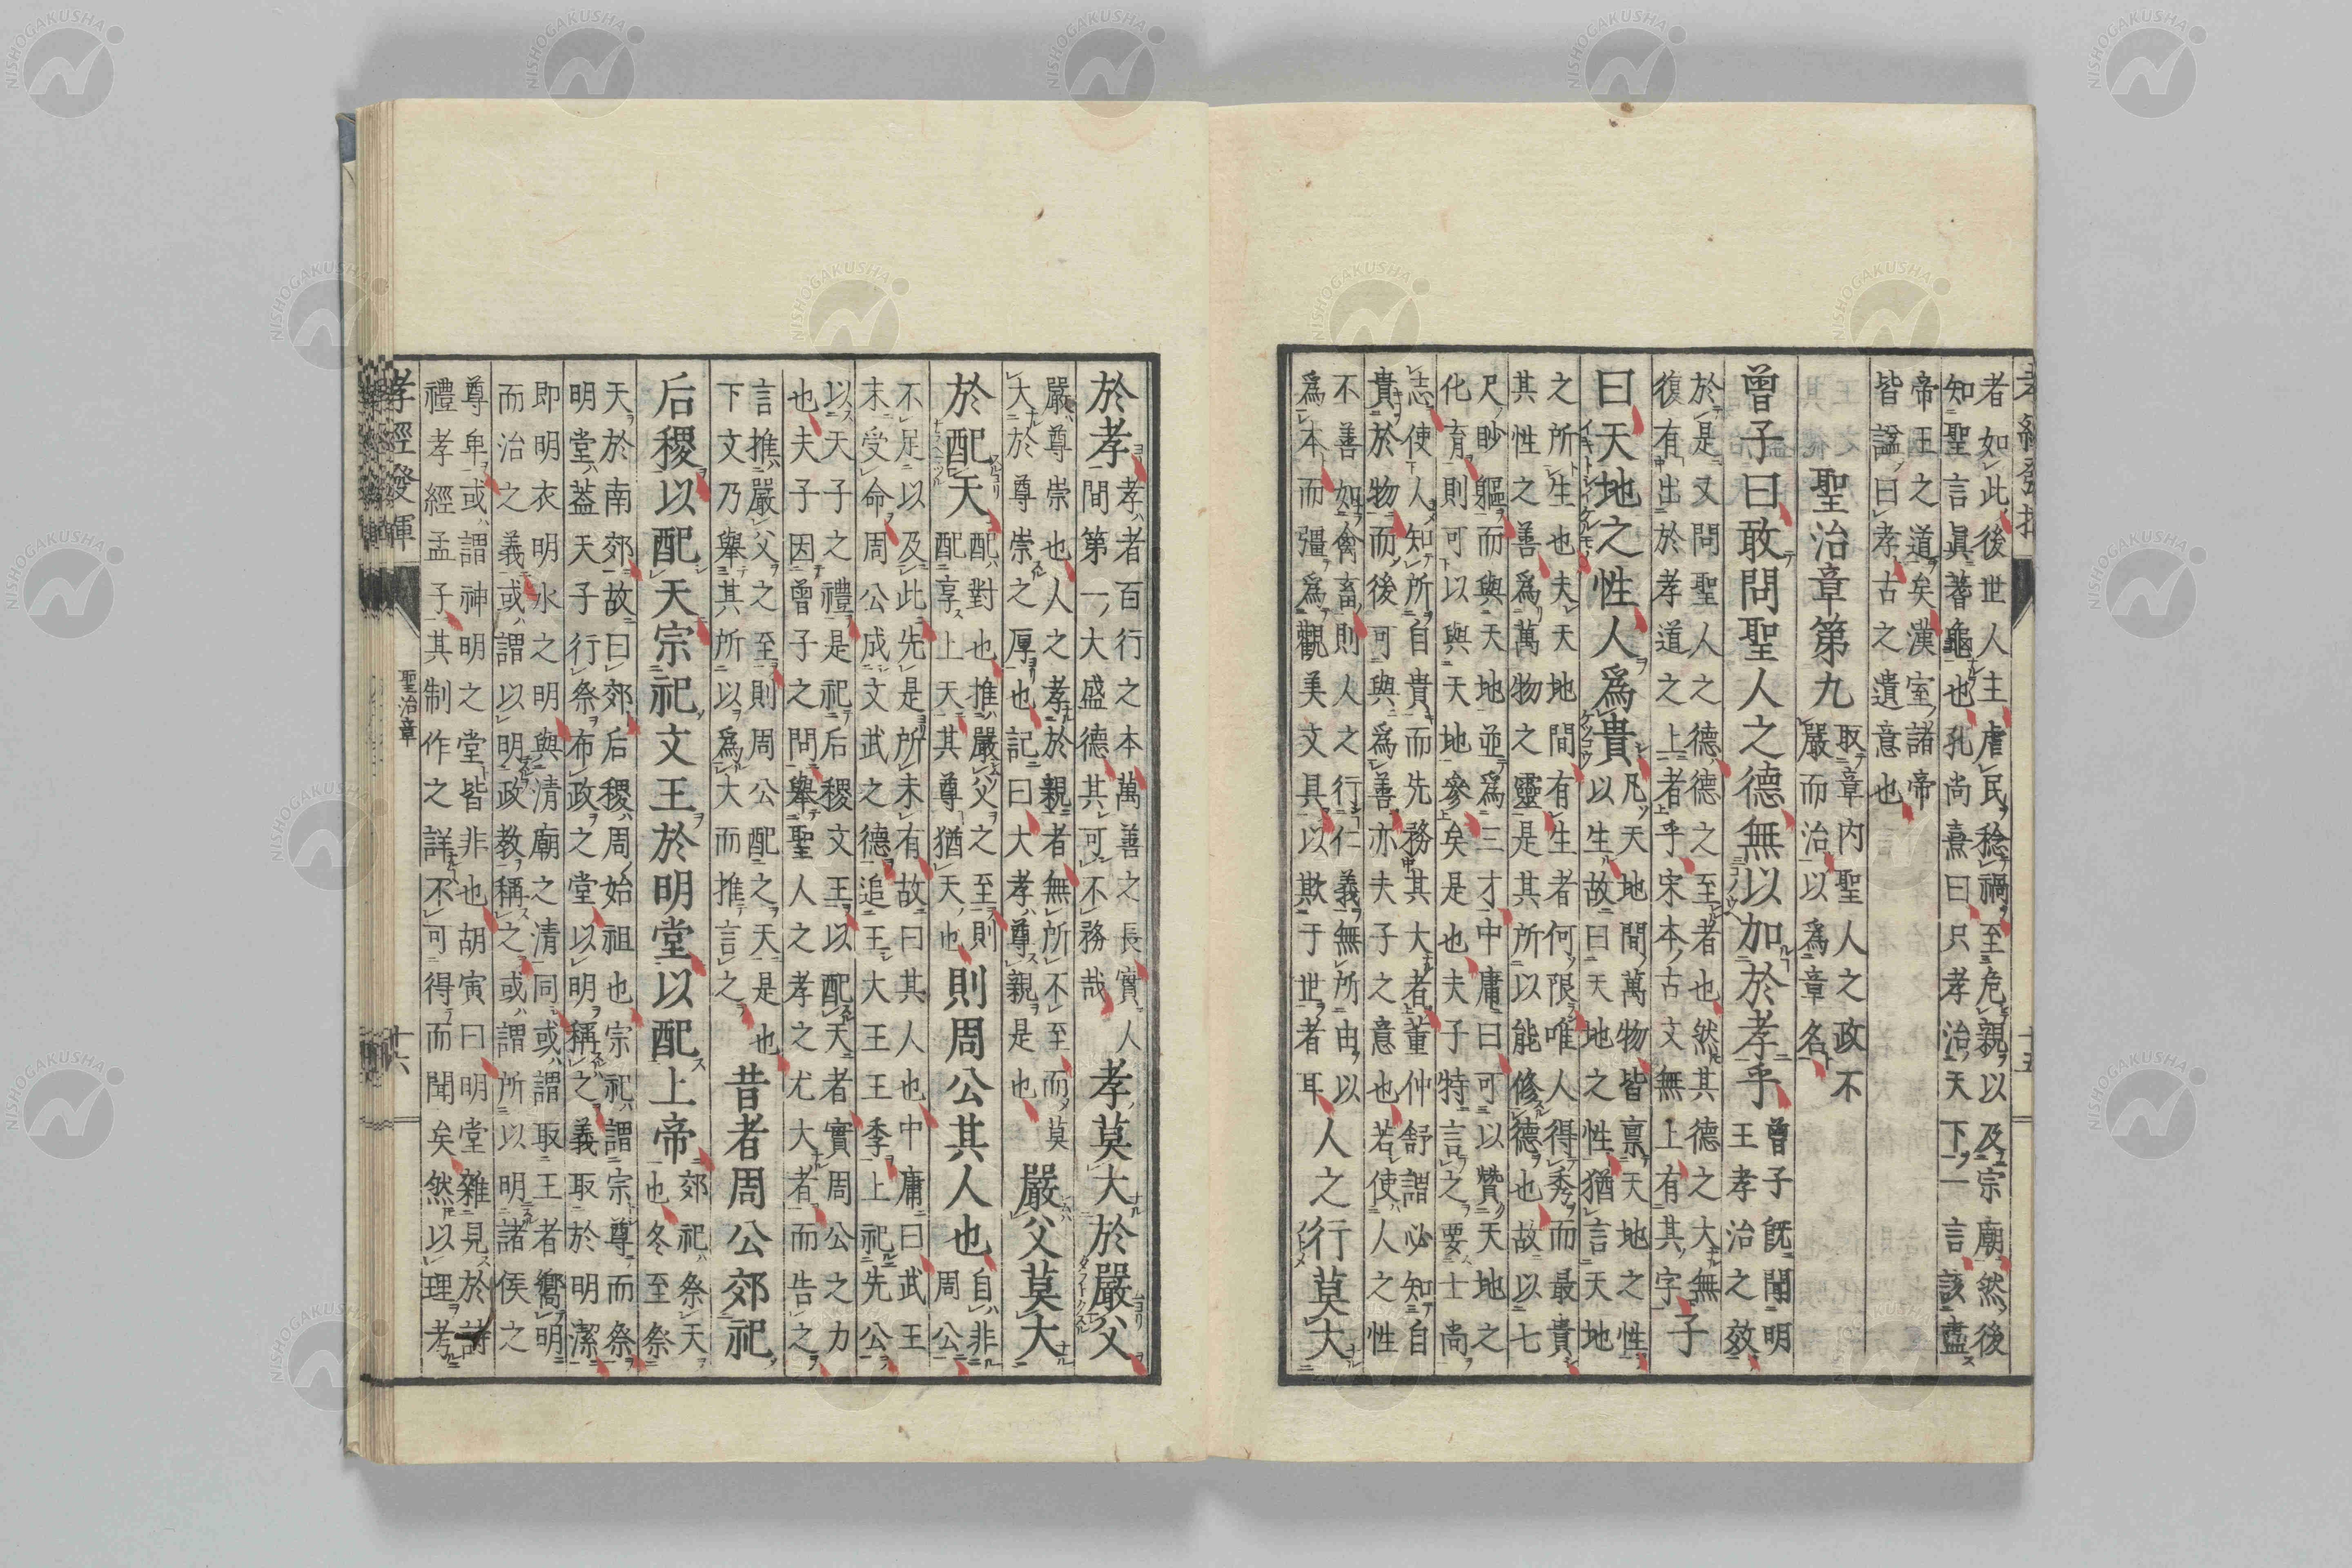 者如此後世人主虐民稔禍至危親以及宗廟然後
知聖言眞蓍龜也孔尚熹曰只孝治天下一言該盡
帝王之道矣漢室諸帝
皆諡曰孝古之遺意也
聖治章第九
取章内聖人之政不
嚴而治以爲章名
曾子曰敢問聖人之德無以加於孝乎
曾子既聞明
王孝治之效
於是又問聖人之德德之至者也然其德之大無
復有出於孝道之上者乎宋本古文無上有其字
子
曰天地之性人爲貴
凡天地間萬物皆禀天地之性
以生故曰天地之性猶言天地
之所生也夫天地間有生者何限唯人得秀而最貴
其性之善爲萬物之靈是其所以能修德也故以七
尺眇軀而與天地並爲三才中庸曰可以贊天地之
化育則可以與天地參矣是也夫子特言之要士尚
志使人知所自貴而先務其大者董仲舒謂必知自
貴於物而後可與爲善亦夫子之意也若使人之性
不善如禽畜則人之行仁義無所由以
爲本而彊爲觀美文具以欺于世者耳
人之行莫大
於孝
孝者百行之本萬善之長實人
間第一大盛德其可不務哉
孝莫大於嚴父
嚴尊崇也人之孝於親者無所不至而莫
大於尊崇之厚也記曰大孝尊親是也
嚴父莫大
於配天
配對也推嚴父之至則
配享上天其尊猶天也
則周公其人也
自非
周公
不足以及此先是所未有故曰其人也中庸曰武王
末受命周公成文武之德追王大王王季上祀先公
以天子之禮是祀后稷文王以配天者實周公之力
也夫子因曾子之問舉聖人之孝之尤大者而告之
言推嚴父之至則周公配之天是也
下文乃舉其所以爲大而推言之
昔者周公郊祀
后稷以配天宗祀文王於明堂以配上帝
郊祀祭天
也冬至祭
天於南郊故曰郊后稷周始祖也宗祀謂宗尊而祭
明堂葢天子行祭布政之堂以明稱之義取於明潔
即明衣明水之明與清廟之清同或謂取王者嚮明
而治之義或謂以明政教稱之或謂所以明諸侯之
尊卑或謂神明之堂皆非也胡寅曰明堂雜見於詩
禮孝經孟子其制作之詳不可得而聞矣然以理考
孝經發揮
聖治章
十六